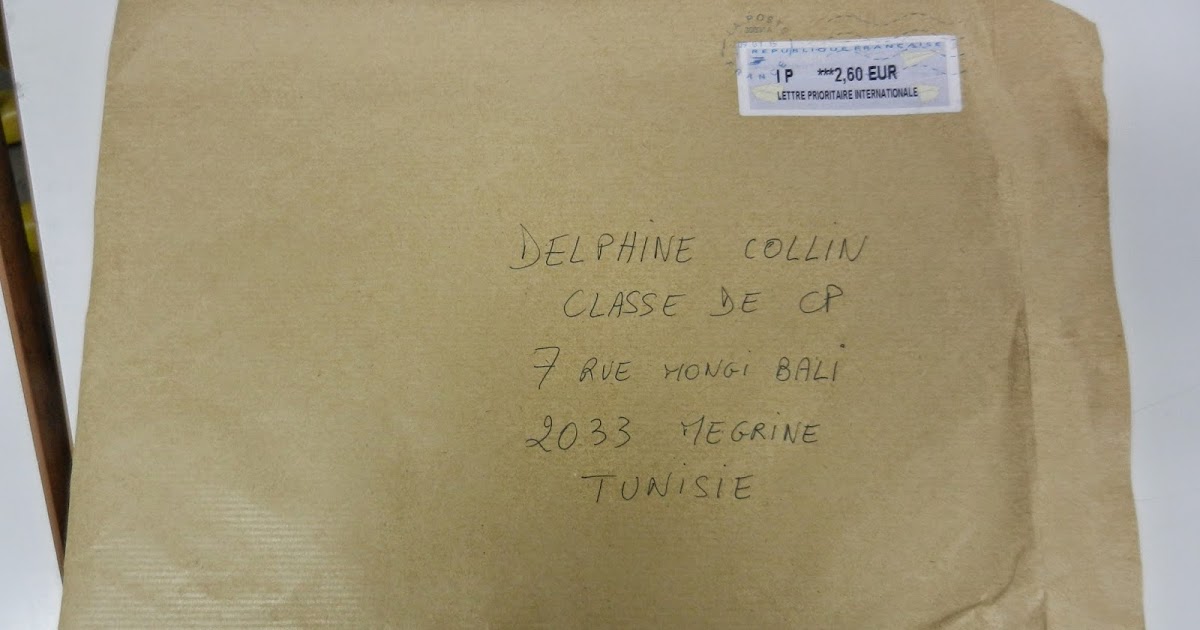 RÉPUBLIQUE FRANÇAISE
IP ***2,60 EUR
LETTRE PRIORITAIRE INTERNATIONALE
DELPHINE COLLIN
CLASSE DE CP
7 RUE MONGI BALI
2033 MEGRINE
TUNISIE